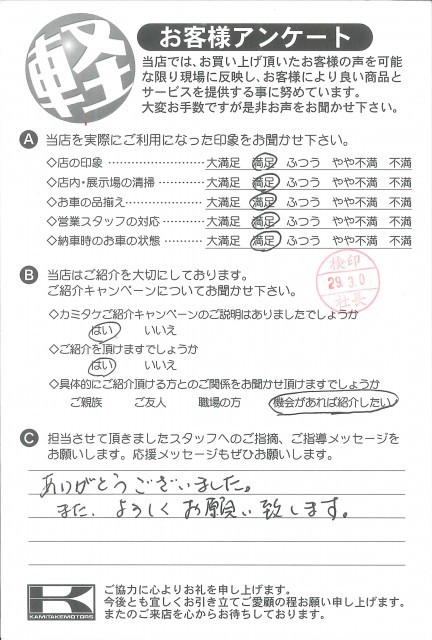 軽
お客様アンケート
当店では、お買い上げ頂いたお客様の声を可能
な限り現場に反映し、お客様により良い商品と
サービスを提供する事に努めています。
大変お手数ですが是非お声をお聞かせ下さい。
A 当店を実際にご利用になった印象をお聞かせ下さい。
◇店の印象 ……………… 大満足 満足 ふつう やや不満 不満
◇店内・展示場の清掃 ……… 大満足 満足 ふつう やや不満 不満
◇お車の品揃え…………… 大満足 満足 ふつう やや不満 不満
◇営業スタッフの対応 ……… 大満足 満足 ふつう やや不満 不満
◇納車時のお車の状態 ……… 大満足 満足 ふつう やや不満 不満
B 当店はご紹介を大切にしております。
ご紹介キャンペーンについてお聞かせ下さい。
検印
29.3.0
社長
◇カミタケご紹介キャンペーンのご説明はありましたでしょうか
はい いいえ
◇ご紹介を頂けますでしょうか
はい いいえ
◇具体的にご紹介頂ける方とのご関係をお聞かせ頂けますでしょうか
ご親族 ご友人 職場の方 機会があれば紹介したい
C 担当させて頂きましたスタッフへのご指摘、ご指導メッセージを
お願いします。応援メッセージもぜひお願いします。
ありがとうございました。
また、よろしくお願い致します。
K
KAMITAKEMOTORS
ご協力に心よりお礼を申し上げます。
今後とも宜しくお引き立てご愛顧の程お願い申し上げます。
またのご来店を心からお待ちしております。